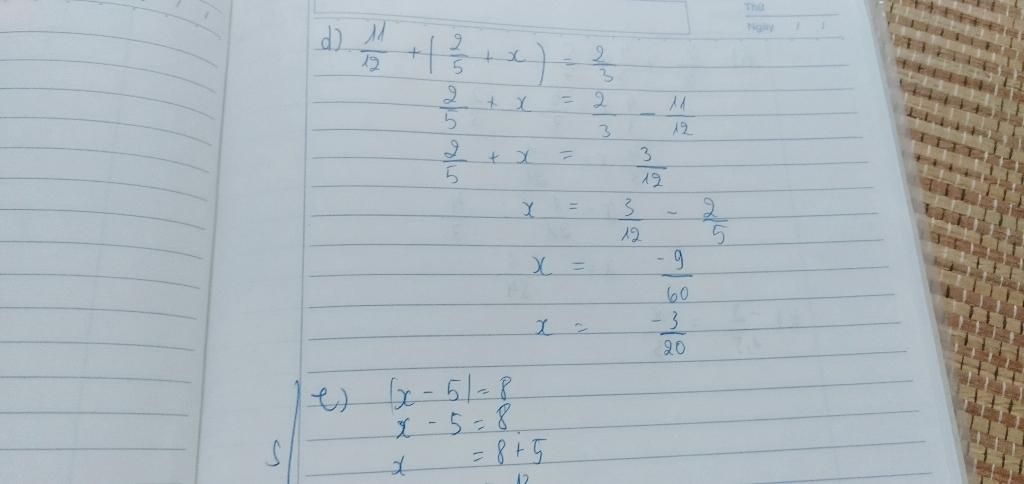 Thứ
Ngày / /
d) 11/12 + (2/5 + x) = 2/3
2/5 + x = 2/3 - 11/12
2/5 + x = 3/12
x = 3/12 - 2/5
x = -9/60
x = -3/20
e) |x - 5| = 8
x - 5 = 8
S
x = 8 + 5